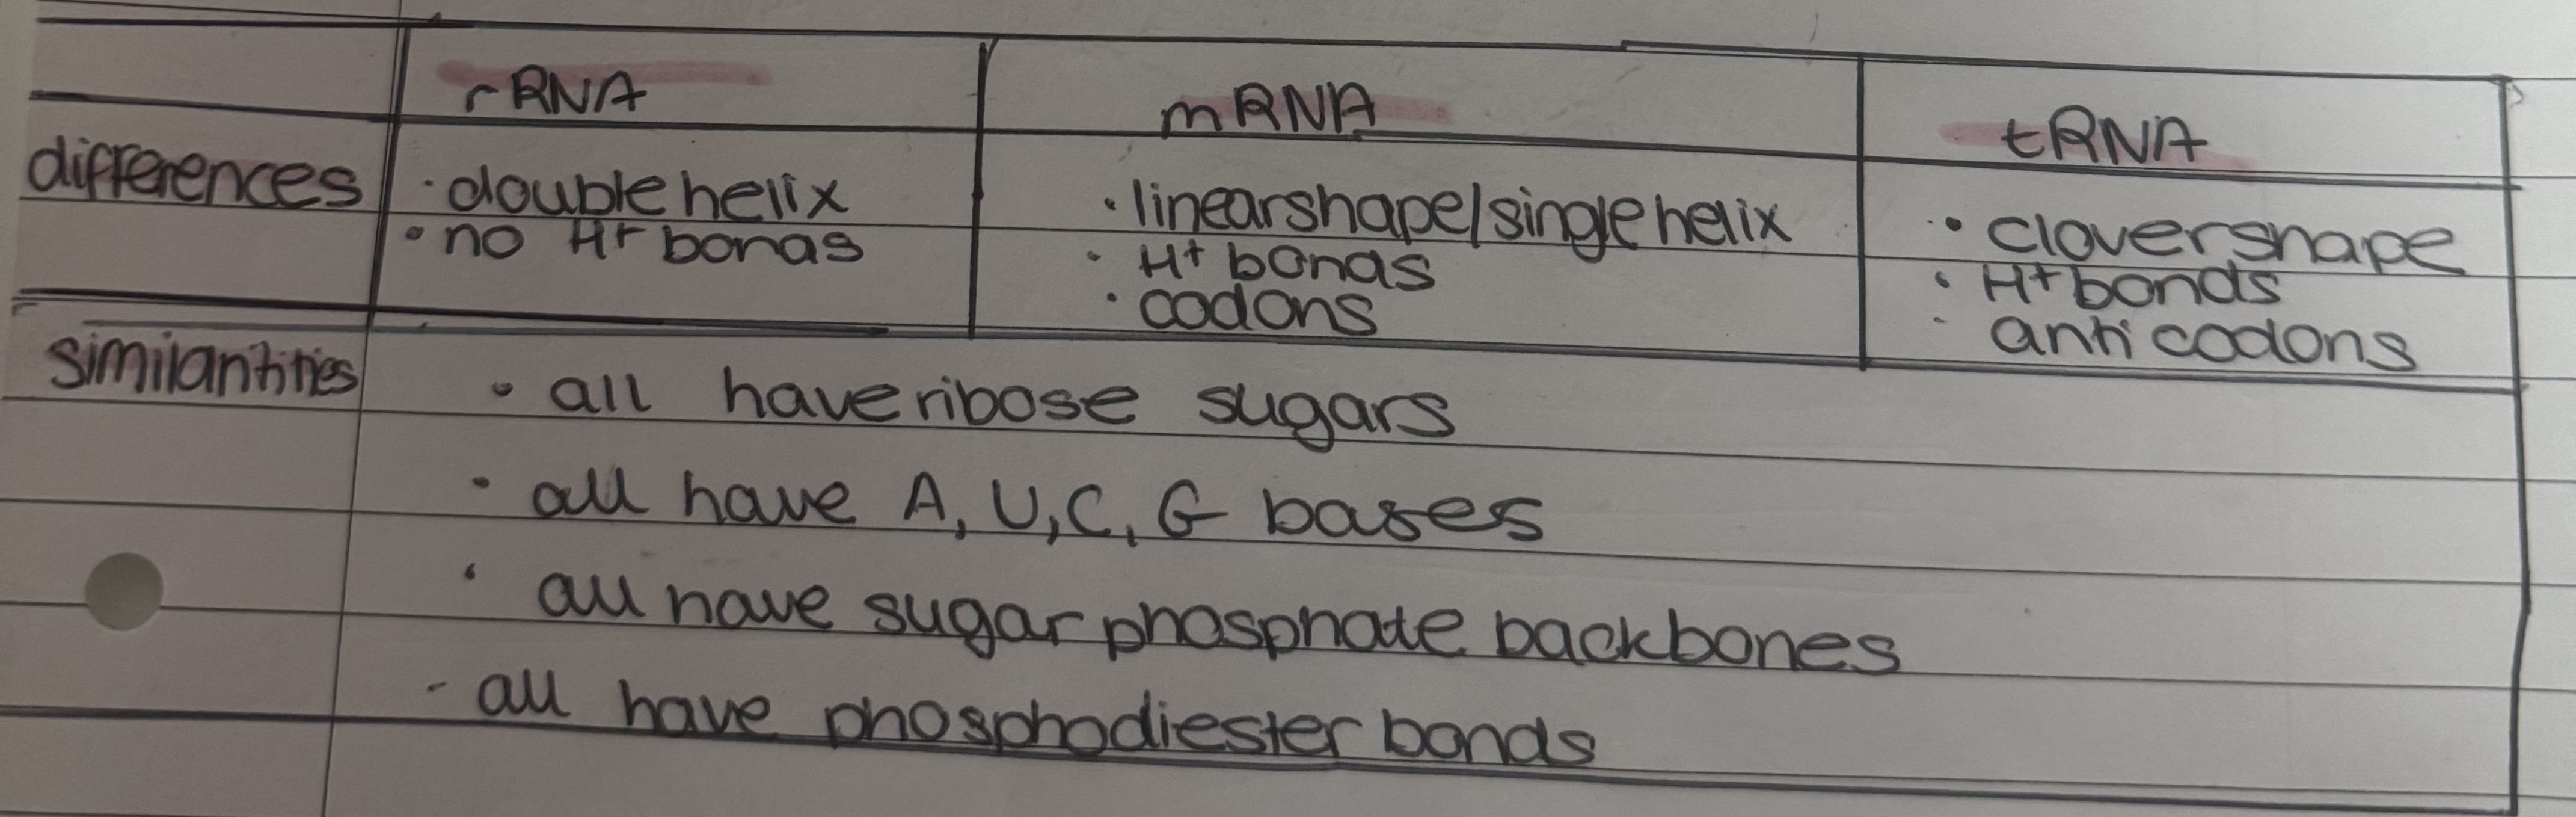 rRNA
mRNA
tRNA
differences
· double helix
• no H+ bonds
· linear shape/single helix
· H+ bonds
· codons
• clover shape
· H+ bonds
· anti codons
similantities
• all have ribose sugars
· all have A, U, C, G bases
· all have sugar phosphate backbones
- all have phosphodiester bonds